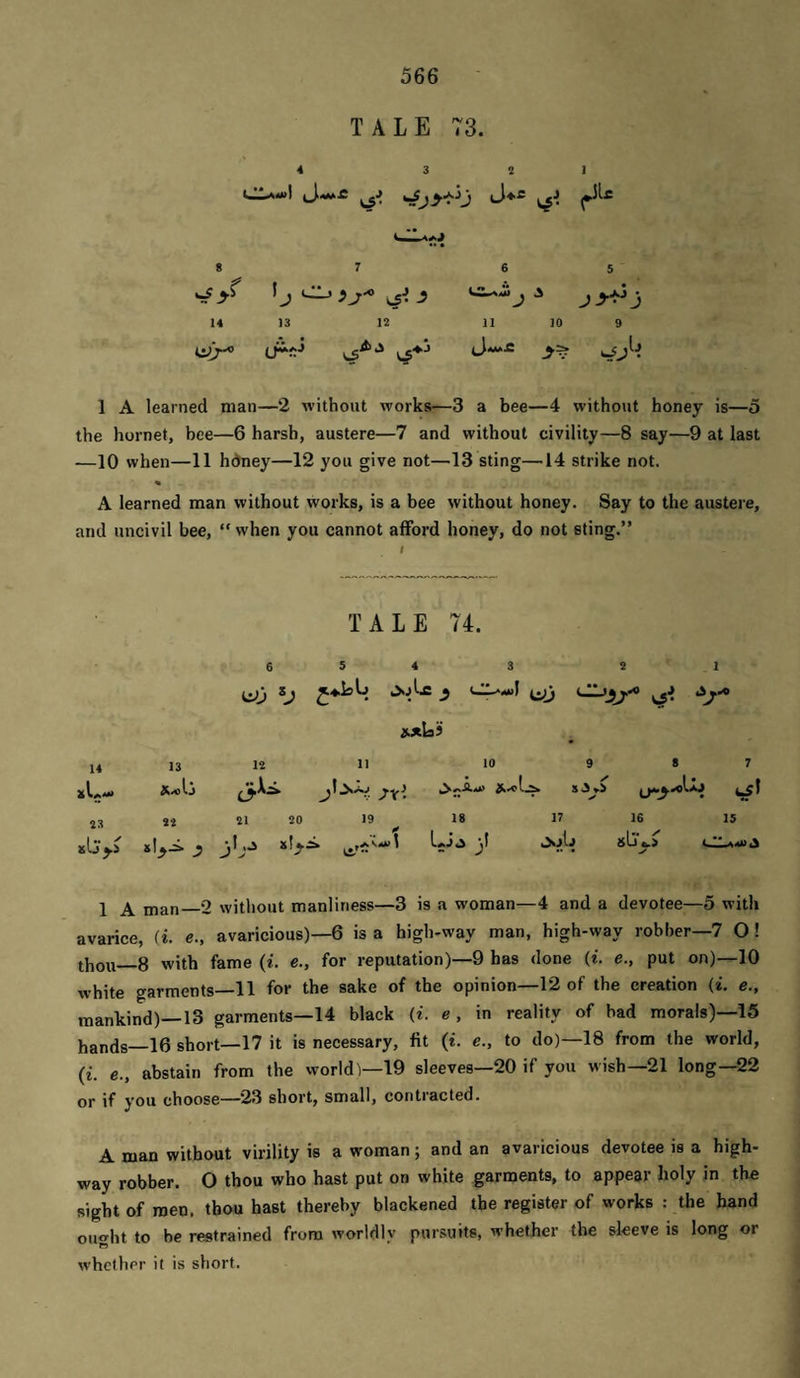 566
TALE 73.
4 3 2 1
عالم بی عمل زنبوری بی عسل است
بیت
8 7 6 5
زنبور درشت و بی مروت را گوی
14 13 12 11 10 9
باری چو عسل نمی دهی نیش مزن
1 A learned man—2 without works—3 a bee—4 without honey is—5
the hornet, bee—6 harsh, austere—7 and without civility—8 say—9 at last
—10 when—11 honey—12 you give not—13 sting—14 strike not.
A learned man without works, is a bee without honey. Say to the austere,
and uncivil bee, “when you cannot afford honey, do not sting.”
TALE 74.
6 5 4 3 2 1
مرد بی مروت زن است و عابد باطمع ره زن
قطعه
14 13 12 11 10 9 8 7
ای بناموس کرده جامه سفید بهر پندار خلق نامه سیاه
23 22 21 20 19 18 17 16 15
دست کوتاه باید از دنیا آستین خواه دراز و خواه کوتاه
1 A man—2 without manliness—3 is a woman—4 and a devotee—5 with
avarice, (i. e., avaricious)—6 is a high-way man, high-way robber—7 O!
thou—8 with fame (i. e., for reputation)—9 has done (i. e., put on)—10
white garments—11 for the sake of the opinion—12 of the creation (i. e.,
mankind)—13 garments—14 black (i. e, in reality of bad morals)—15
hands—16 short—17 it is necessary, fit (i. e., to do)—18 from the world,
(i. e., abstain from the world)—19 sleeves—20 if you wish—21 long—22
or if you choose—23 short, small, contracted.
A man without virility is a woman; and an avaricious devotee is a high-
way robber. O thou who hast put on white garments, to appear holy in the
sight of men, thou hast thereby blackened the register of works : the hand
ought to be restrained from worldly pursuits, whether the sleeve is long or
whether it is short.